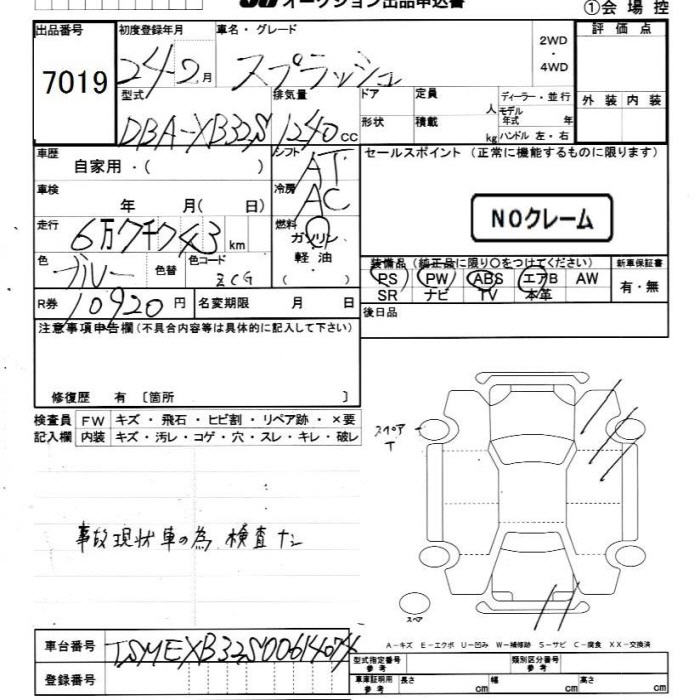 オークション出品申込書
①会場控
出品番号 7019
初度登録年月 24-2月
車名・グレード スプラッシュ
2WD・4WD
評価点
外装 内装
型式 DBA-XB32S
排気量 1240cc
ドア
形状
定員 人
積載 kg
ディーラー・並行
モデル年式 年
ハンドル 左・右
車歴 自家用・( )
シフト AT
セールスポイント (正常に機能するものに限ります)
NOクレーム
車検 年 月( 日)
冷房 AC
走行 6万7千743km
燃料 ガソリン 軽油 ( )
色 ブルー 色替
色コード ZCG
装備品 (純正品に限り〇をつけてください)
PS PW ABS エアB AW
SR ナビ TV 本革
新車保証書 有・無
R券 10920円
名変期限 月 日
後日品
注意事項申告欄(不具合内容等は具体的に記入して下さい)
修復歴 有 〔箇所 〕
検査員記入欄
FW キズ・飛石・ヒビ割・リペア跡・×要
内装 キズ・汚レ・コゲ・穴・スレ・キレ・破レ
スペア T
事故現状車の為 検査ナシ
スペア
A-キズ E-エクボ U-凹み W-補修跡 S-サビ C-腐食 XX-交換済
車台番号 TSMEXB32S00614074
登録番号
型式指定番号 参考
類別区分番号 参考
車庫証明用 参考 長さ cm 幅 cm 高さ cm